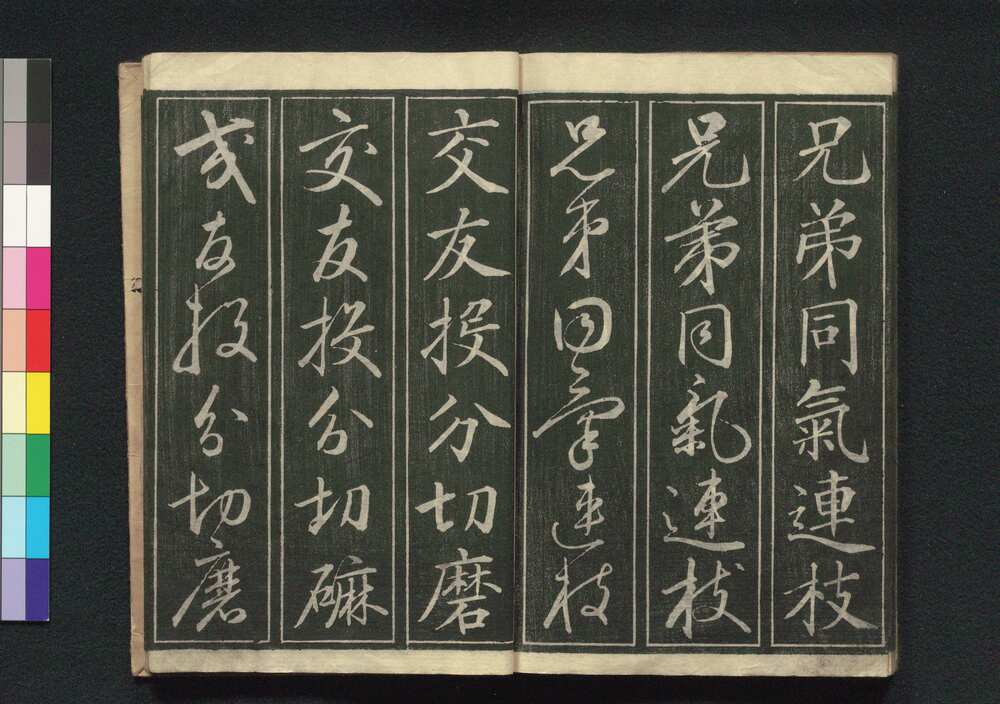 兄弟同氣連枝
兄弟同氣連枝
兄弟同氣連枝
交友投分切磨
交友投分切𥕂
交友投分切磨